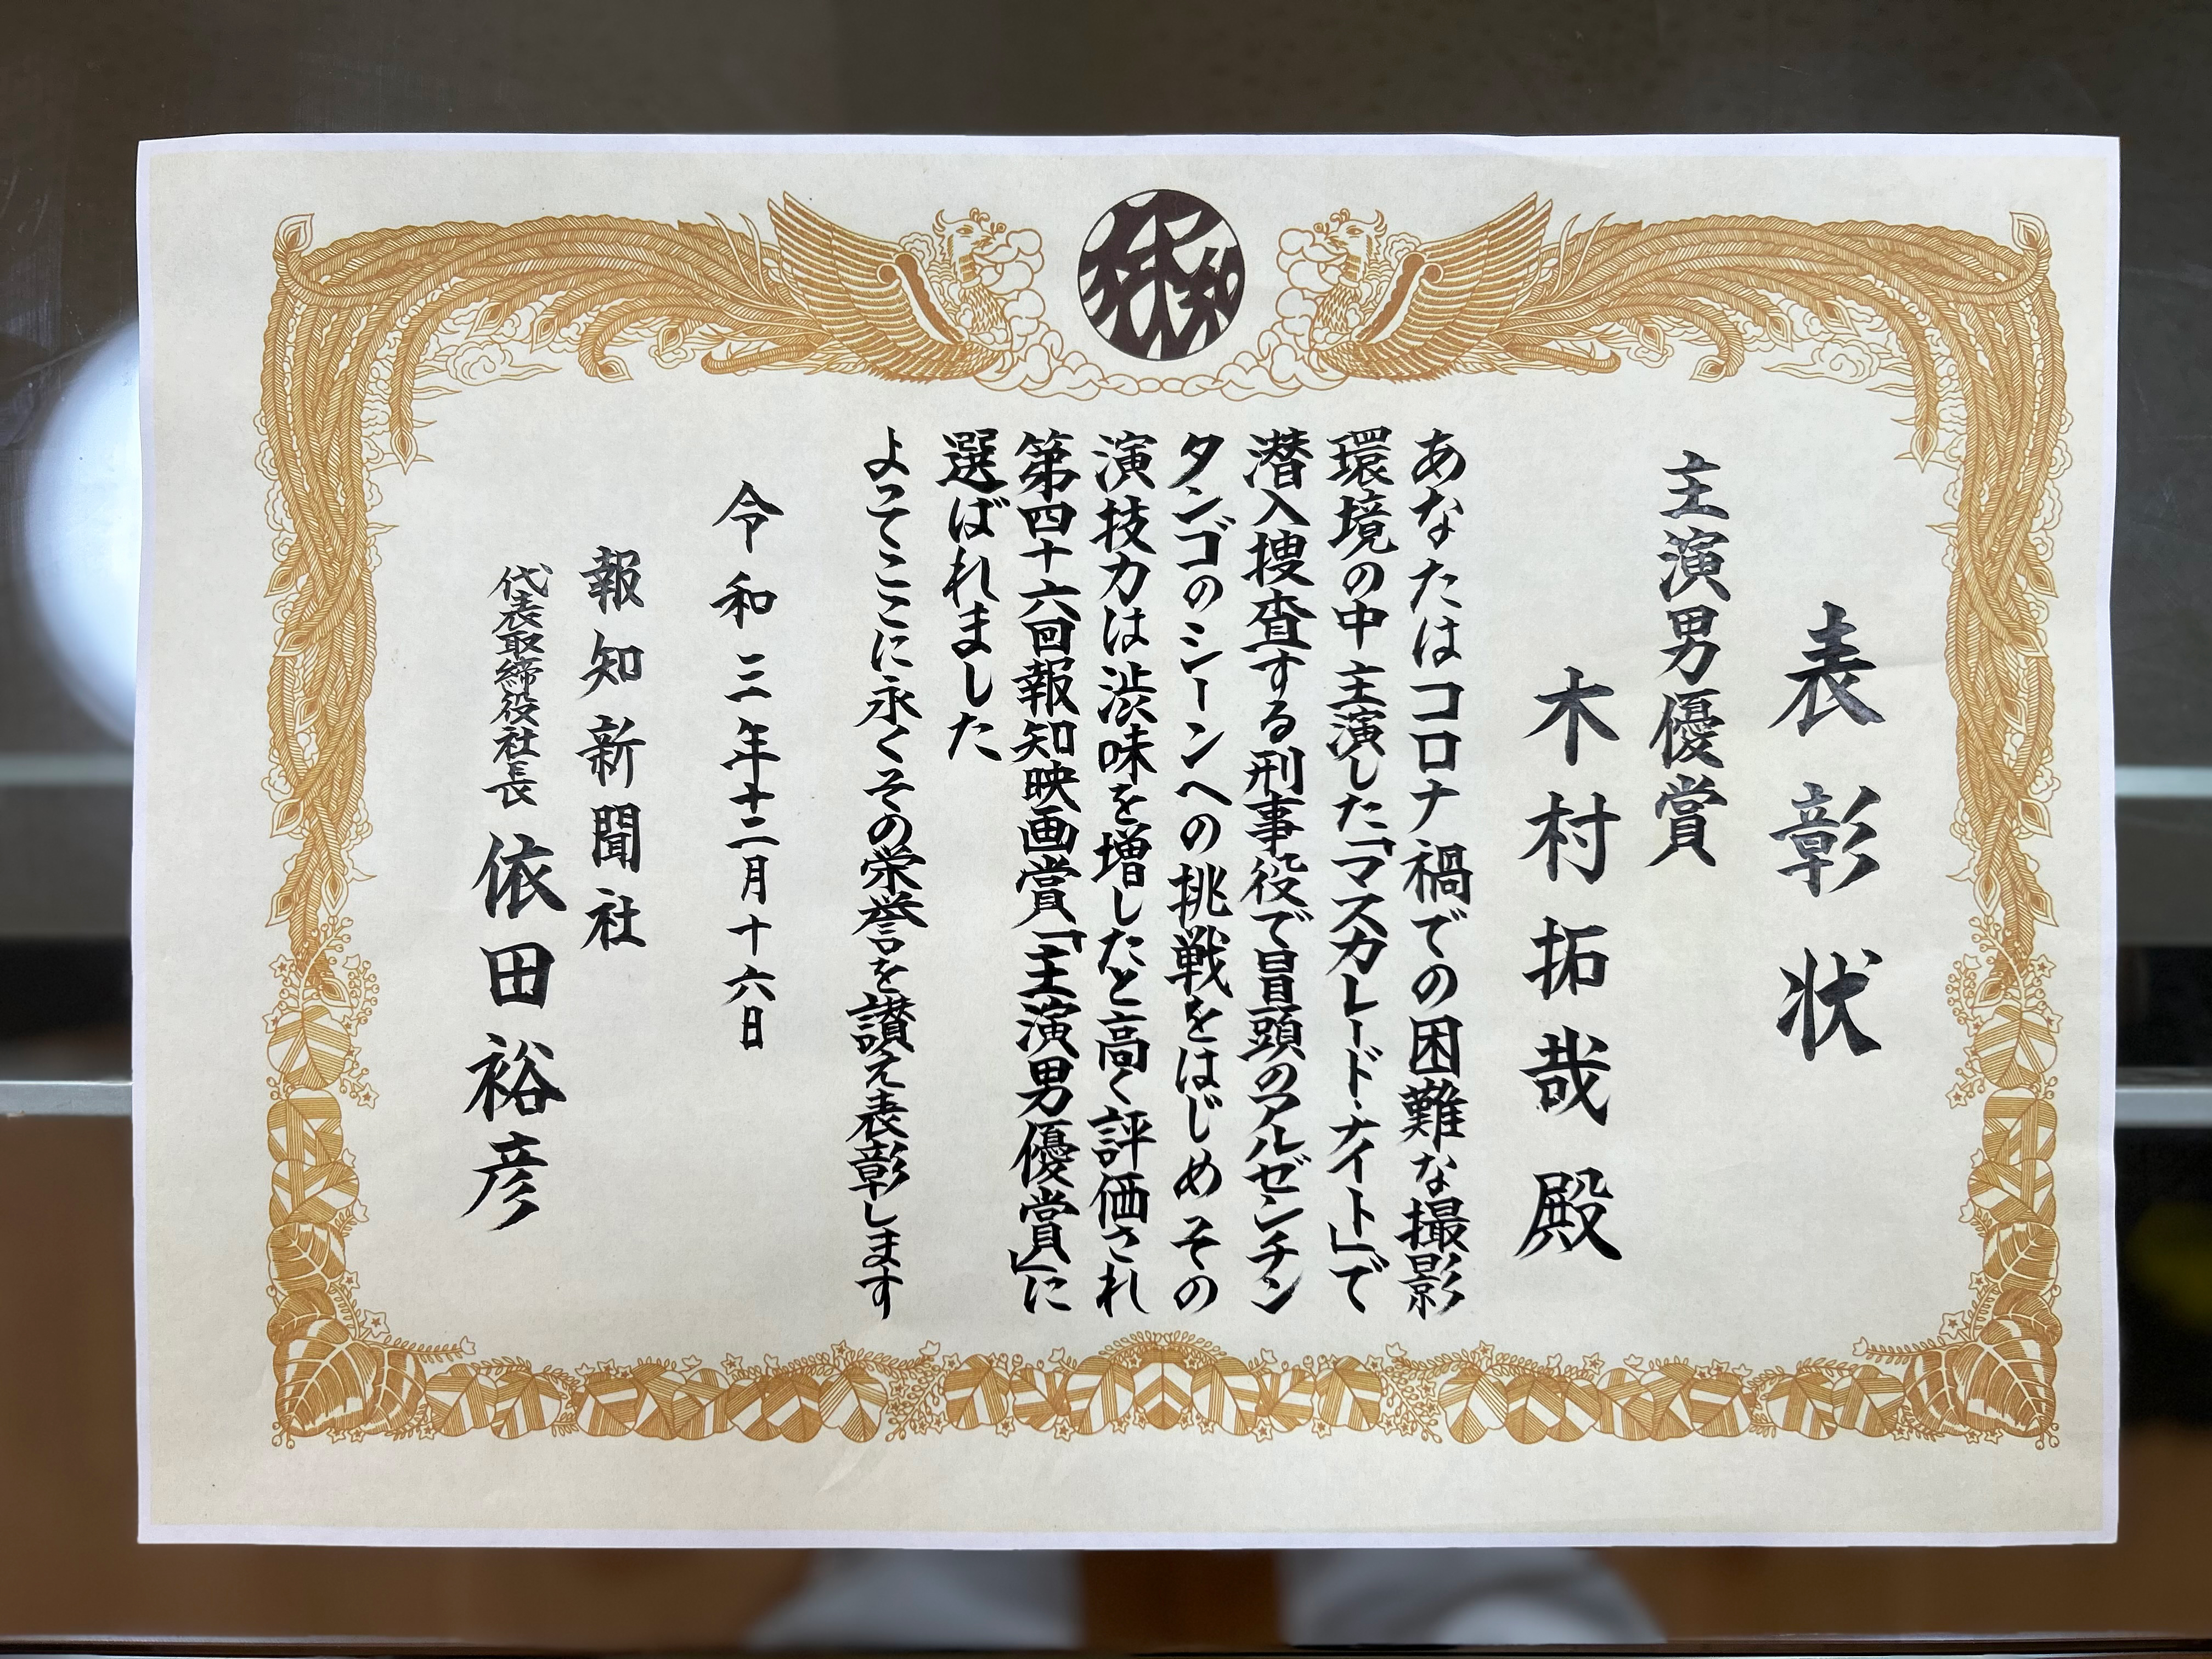 表彰状
主演男優賞
木村拓哉殿
あなたはコロナ禍での困難な撮影
環境の中主演した「マスカレード・ナイト」で
潜入捜査する刑事役で冒頭のアルゼンチン
タンゴのシーンへの挑戦をはじめその
演技力は渋味を増したと高く評価され
第四十六回報知映画賞「主演男優賞」に
選ばれました
よってここに永くその栄誉を讃え表彰します
令和三年十二月十六日
報知新聞社
代表取締役社長 依田裕彦